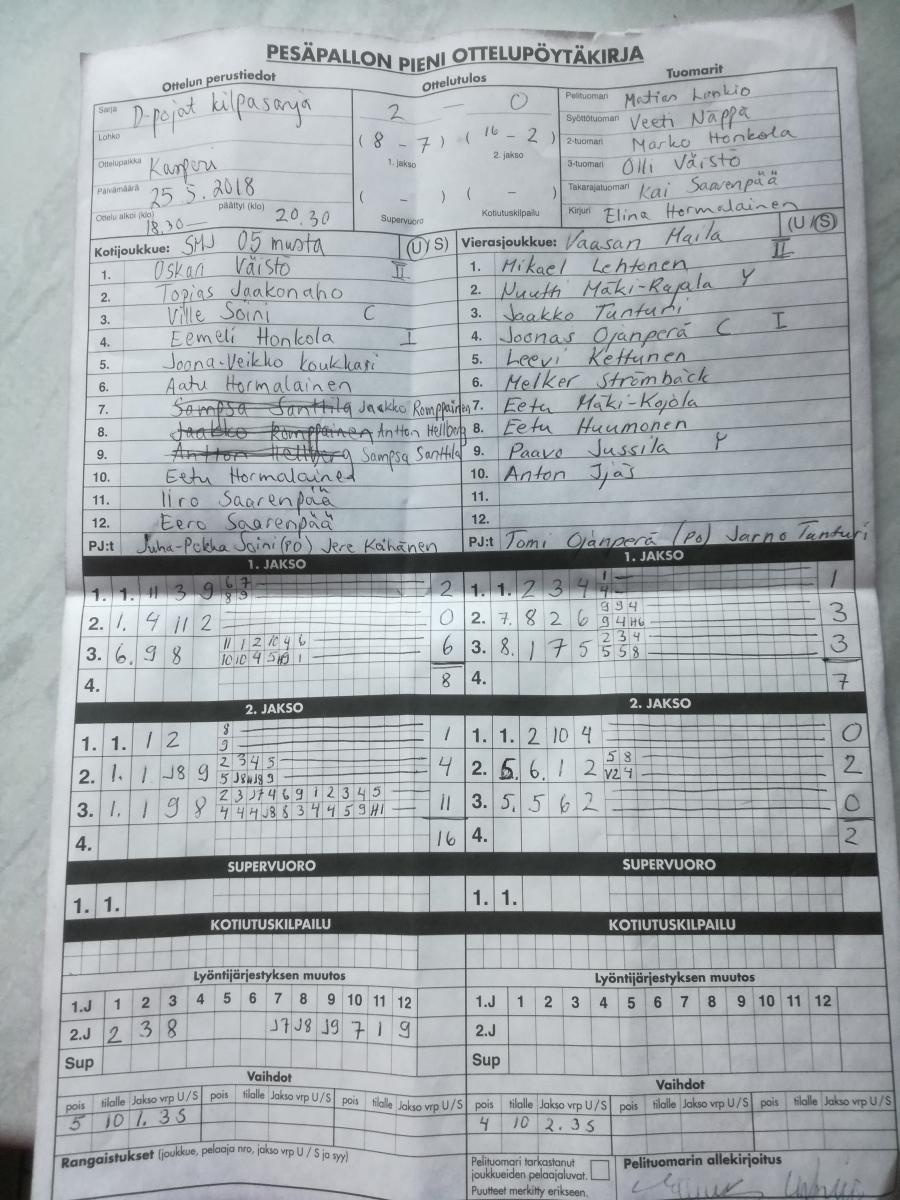 PESÄPALLON PIENI OTTELUPÖYTÄKIRJA
Ottelun perustiedot
Sarja D-pojat kilpasarja
Lohko
Ottelupaikka Kamperi
Päivämäärä 25.5.2018
Ottelu alkoi (klo) 18.30 päättyi (klo) 20.30
Ottelutulos
2 — 0
( 8 - 7 ) ( 16 - 2 )
1. jakso 2. jakso
( - ) ( - )
Supervuoro Kotiutuskilpailu
Tuomarit
Pelituomari Matias Lonkio
Syöttötuomari Veeti Näppä
2-tuomari Marko Honkola
3-tuomari Olli Väistö
Takarajatuomari Kai Saarenpää
Kirjuri Elina Hormalainen
Kotijoukkue: SMJ 05 musta (U/S)
1. Oskari Väistö II
2. Topias Jaakonaho
3. Ville Soini C
4. Eemeli Honkola I
5. Joona-Veikko Koukkari
6. Aatu Hormalainen
7. Sampsa Santtila Jaakko Romppainen
8. Jaakko Romppainen Antton Hellberg
9. Antton Hellberg Sampsa Santtila
10. Eetu Hormalainen
11. Iiro Saarenpää
12. Eero Saarenpää
PJ:t Juha-Pekka Soini (PO) Jere Kaihänen
Vierasjoukkue: Vaasan Maila (U/S)
II
1. Mikael Lehtonen
2. Nuutti Mäki-Rajala Y
3. Jaakko Tunturi
4. Joonas Ojanperä C I
5. Leevi Kettunen
6. Melker Strömbäck
7. Eetu Mäki-Kojola
8. Eetu Huumonen
9. Paavo Jussila Y
10. Anton Ijäs
11.
12.
PJ:t Tomi Ojanperä (PO) Jarno Tunturi
1. JAKSO
1. 1. 11 3 9 6 7 2
8 9
2. 1. 4 11 2 0
3. 6. 9 8 11 1 2 10 4 6 6
10 10 4 5 H9 1
4. 8
1. JAKSO
1. 1. 2 3 4 1 1
4
2. 7. 8 2 6 9 9 4 3
9 4 H6
3. 8. 1 7 5 2 3 4 3
5 5 8
4. 7
2. JAKSO
1. 1. 1 2 8 1
9
2. 1. 1 J8 9 2 3 4 5 4
5 J8 J8 9
3. 1. 1 9 8 2 3 J7 4 6 9 1 2 3 4 5 11
4 4 4 J8 8 3 4 4 5 9 H1
4. 16
2. JAKSO
1. 1. 2 10 4 0
2. 5. 6. 1 2 5 8 2
V2 4
3. 5. 5 6 2 0
4. 2
SUPERVUORO
1. 1.
SUPERVUORO
1. 1.
KOTIUTUSKILPAILU
KOTIUTUSKILPAILU
Lyöntijärjestyksen muutos
1.J 1 2 3 4 5 6 7 8 9 10 11 12
2.J 2 3 8 J7 J8 J9 7 1 9
Sup
Lyöntijärjestyksen muutos
1.J 1 2 3 4 5 6 7 8 9 10 11 12
2.J
Sup
Vaihdot
pois tilalle Jakso vrp U/S pois tilalle Jakso vrp U/S pois tilalle Jakso vrp U/S
5 10 1. 3S
Vaihdot
pois tilalle Jakso vrp U/S pois tilalle Jakso vrp U/S pois tilalle Jakso vrp U/S
4 10 2. 3S
Rangaistukset (joukkue, pelaaja nro, jakso vrp U / S ja syy)
Pelituomari tarkastanut
joukkueiden pelaajaluvat.
Puutteet merkitty erikseen.
Pelituomarin allekirjoitus